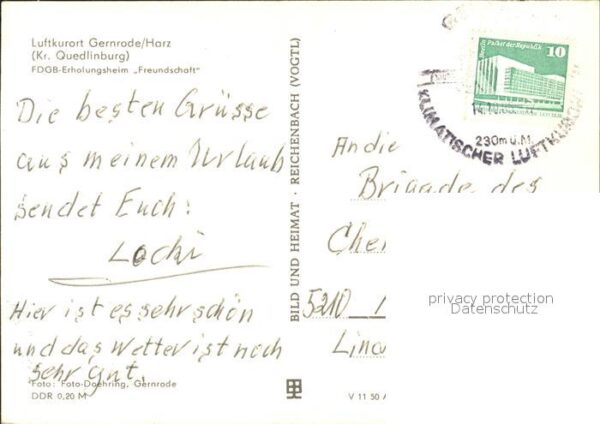 Luftkurort Gernrode/Harz
(Kr. Quedlinburg)
FDGB-Erholungsheim „Freundschaft"
Die besten Grüsse
aus meinem Urlaub
sendet Euch:
Lochi
Hier ist es sehr schön
und das Wetter ist noch
sehr gut.
Foto: Foto-Doehring, Gernrode
DDR 0,20 M
BILD UND HEIMAT · REICHENBACH (VOGTL)
Berlin Palast der Republik
10
230m ü.M.
KLIMATISCHER
An die
Brigade des
Che
5210
Lin
privacy protection
Datenschutz
V 11 50